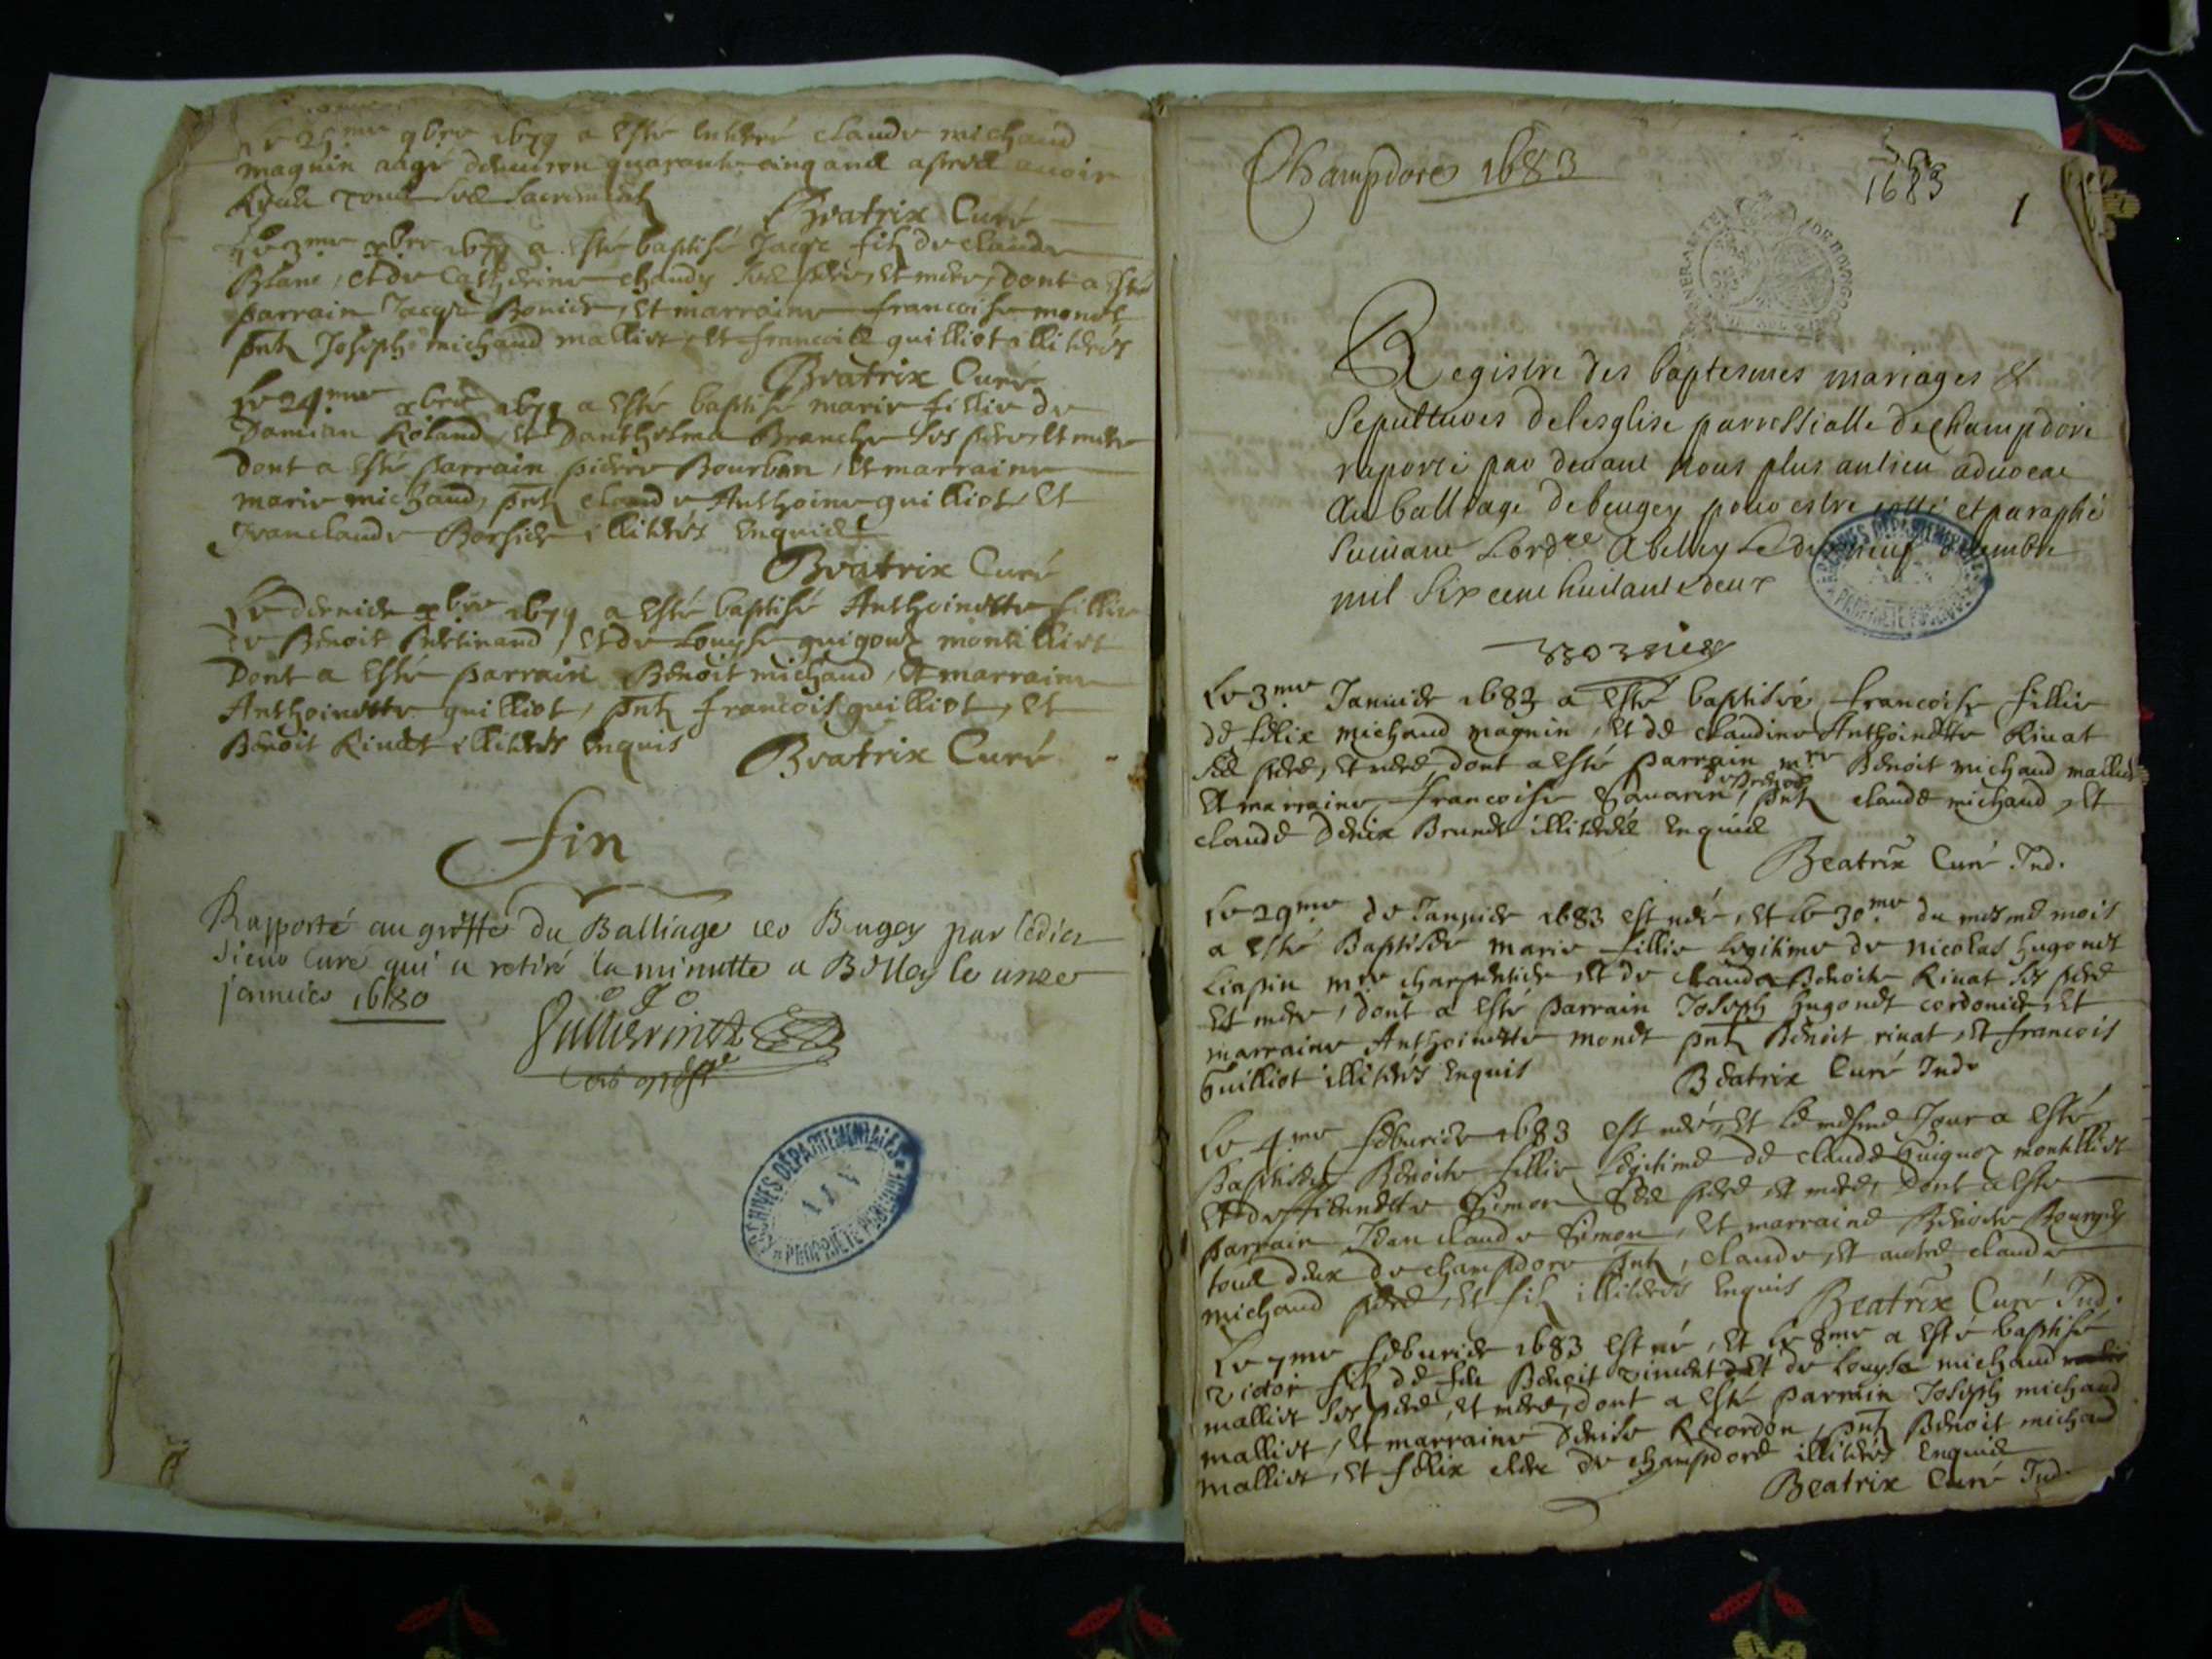 Le 25me 9bre 1679 a esté enterré claude michaud
magnin aagé denuiron quarante cinq ans apres auoir
Receu tous ses sacrements
Beatrix Curé
Le 3me xbre 1679 a esté baptisé Jacqe filz de claude
Blanc, et de Catherine chaudy ses pere, et mere, dont a esté
parrain Jacqe Bonier, et marraine francoise monet
pntz Joseph michaud malliet, et francois guilliot illiterés
Beatrix Curé
Le 24me xbre 1679 a esté baptisé marie fillie de
Damian Roland, et Danthelma Branche ses pere et mere
dont a esté parrain pierre Bourbon, et marraine
marie michaud, pntz claude Anthoine guilliot, et
Jeanclaude Borsier illiterés Enquis
Beatrix Curé
Le dernier xbre 1679 a esté baptisé Anthoinette fillie
de Benoit Berlinand, et de Louyse guigout montilliet
Dont a esté parrain Benoit michaud, et marraine
Anthoinette guilliot, pntz francois guilliot, et
Benoit Riuat illiterés Enquis
Beatrix Curé
fin
Rapporté au greffe du Balliage de Bugey par ledict
sieur Curé qui a retiré la minutte a Belley le unze
januier 1680
Champdore 1683
1683
1
Registre des baptesmes mariages &
sepultures de lesglise parressialle de champdore
raporté par deuant nous plus antien aduocat
au balliage de beugey pour estre cotté et paraphé
suiuant Lordce A belley Le dixneuf decembre
mil six cent huitante deux
ARCHIVES DÉPARTEMENTALES
PROPRIÉTÉ PUBLIQUE
Le 3me Januier 1683 a esté baptisée francoise fillie
de felix michaud magnin, et de claudine Anthoinette Riuat
ses pere, et mere, dont a esté parrain mre Benoit michaud malliet
et marraine francoise Sauarin, pntz claude michaud, et
claude Benix Brunet illiterés enquis
Beatrix Curé Ind.
Le 29me de Januier 1683 est née, et le 30me du mesme mois
a esté Baptisée marie fillie legitime de nicolas hugonet
Liapin mre charpentier, et de clauda Benoite Riuat ses pere
et mere, dont a esté parrain Joseph hugonet cordonier, et
marraine Anthoinette monet pntz Benoit riuat, et francois
Guilliot illiterés Enquis
Beatrix Curé Inde
Le 4me feburier 1683 est née, et le mesme Jour a esté
Baptisée Benoite fillie legitime de claude Guigoz montilliet
et de Simon ses pere et mere, Dont a esté
parrain Jean claude Simon, et marraine Benoite Bourgey
tous deux de champdore pntz, claude, et autre claude
michaud pere, et filz illiterés Enquis
Beatrix Curé Ind.
Le 7me feburier 1683 est né, et le 8me a esté baptisé
victor filz de feu Benoit vincent et de Louyse michaud
malliet ses pere, et mere, dont a esté parrain Joseph michaud
malliet, et marraine Denise Recordon, pntz Benoit michaud
malliet, et felix de champdore illiterés Enquis
Beatrix Curé Ind.
ARCHIVES DÉPARTEMENTALES
AIN
PROPRIÉTÉ PUBLIQUE